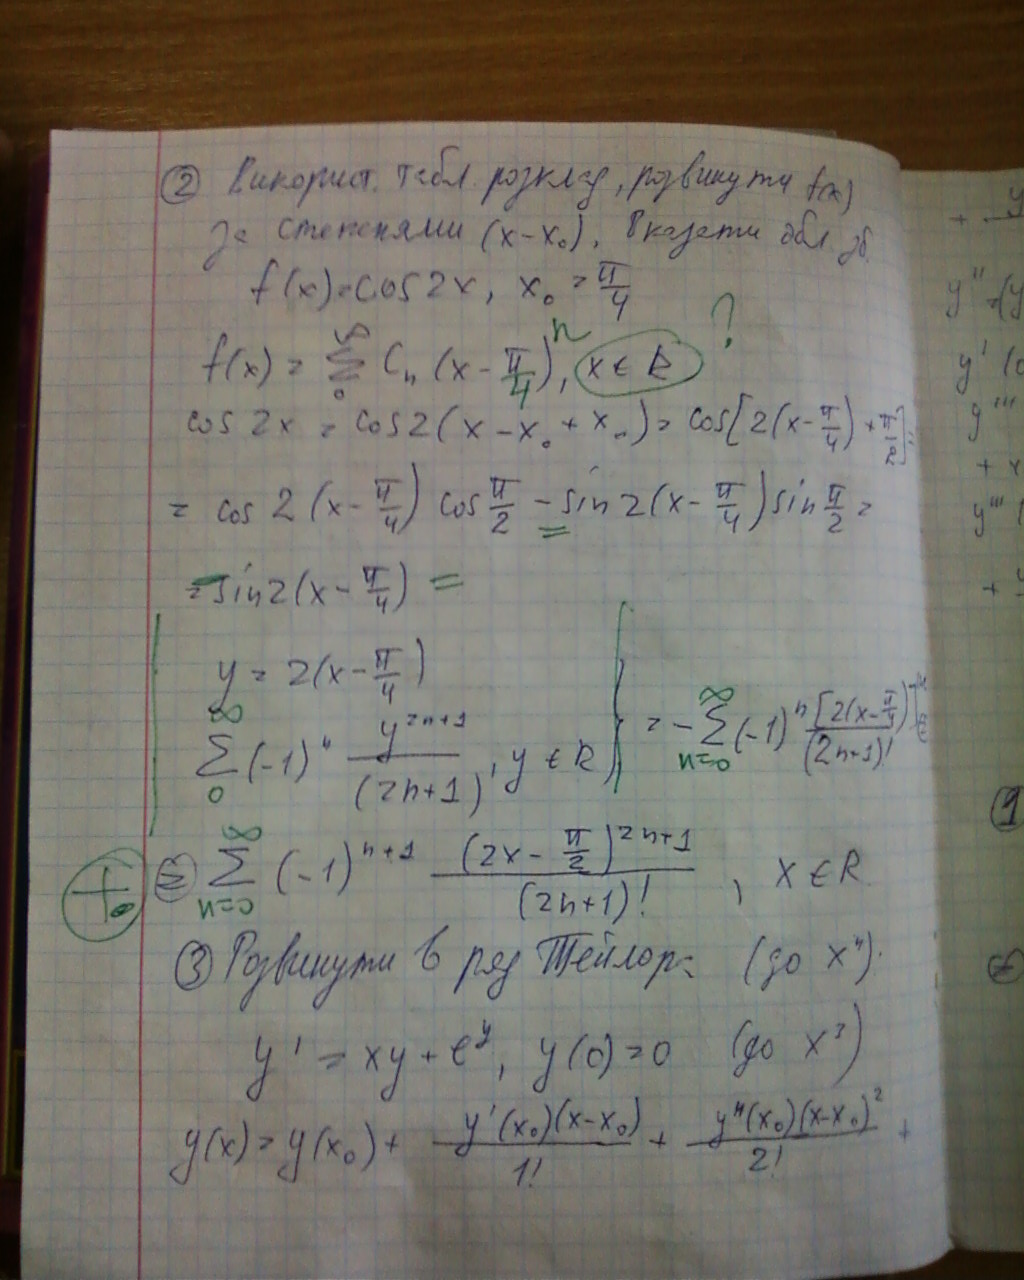 ② Використ. табл. розклад, розвинути f(x)
за степенями (x-x₀), вказати обл. зб.
f(x)=cos2x, x₀ = π/4
f(x) = ∑₀^∞ Cₙ (x - π/4)ⁿ, x ∈ R ?
cos 2x = cos2(x-x₀+x₀) = cos[2(x-π/4)+π/2] =
= cos 2(x-π/4) cos π/2 - sin 2(x-π/4) sin π/2 =
= -sin2(x-π/4) =
y = 2(x-π/4)
∑₀^∞ (-1)ⁿ y²ⁿ⁺¹/(2n+1)!, y ∈ R
= -∑ₙ₌₀^∞ (-1)ⁿ [2(x-π/4)]²ⁿ⁺¹/(2n+1)!
= ∑ₙ₌₀^∞ (-1)ⁿ⁺¹ (2x - π/2)²ⁿ⁺¹/(2n+1)! , x ∈ R.
③ Розвинути в ряд Тейлора (до x⁴).
y' = xy + eʸ, y(0)=0 (до x³)
y(x) = y(x₀) + y'(x₀)(x-x₀)/1! + y''(x₀)(x-x₀)²/2! +
y'' = (y
y' (0
y'''
+ x
y''' (